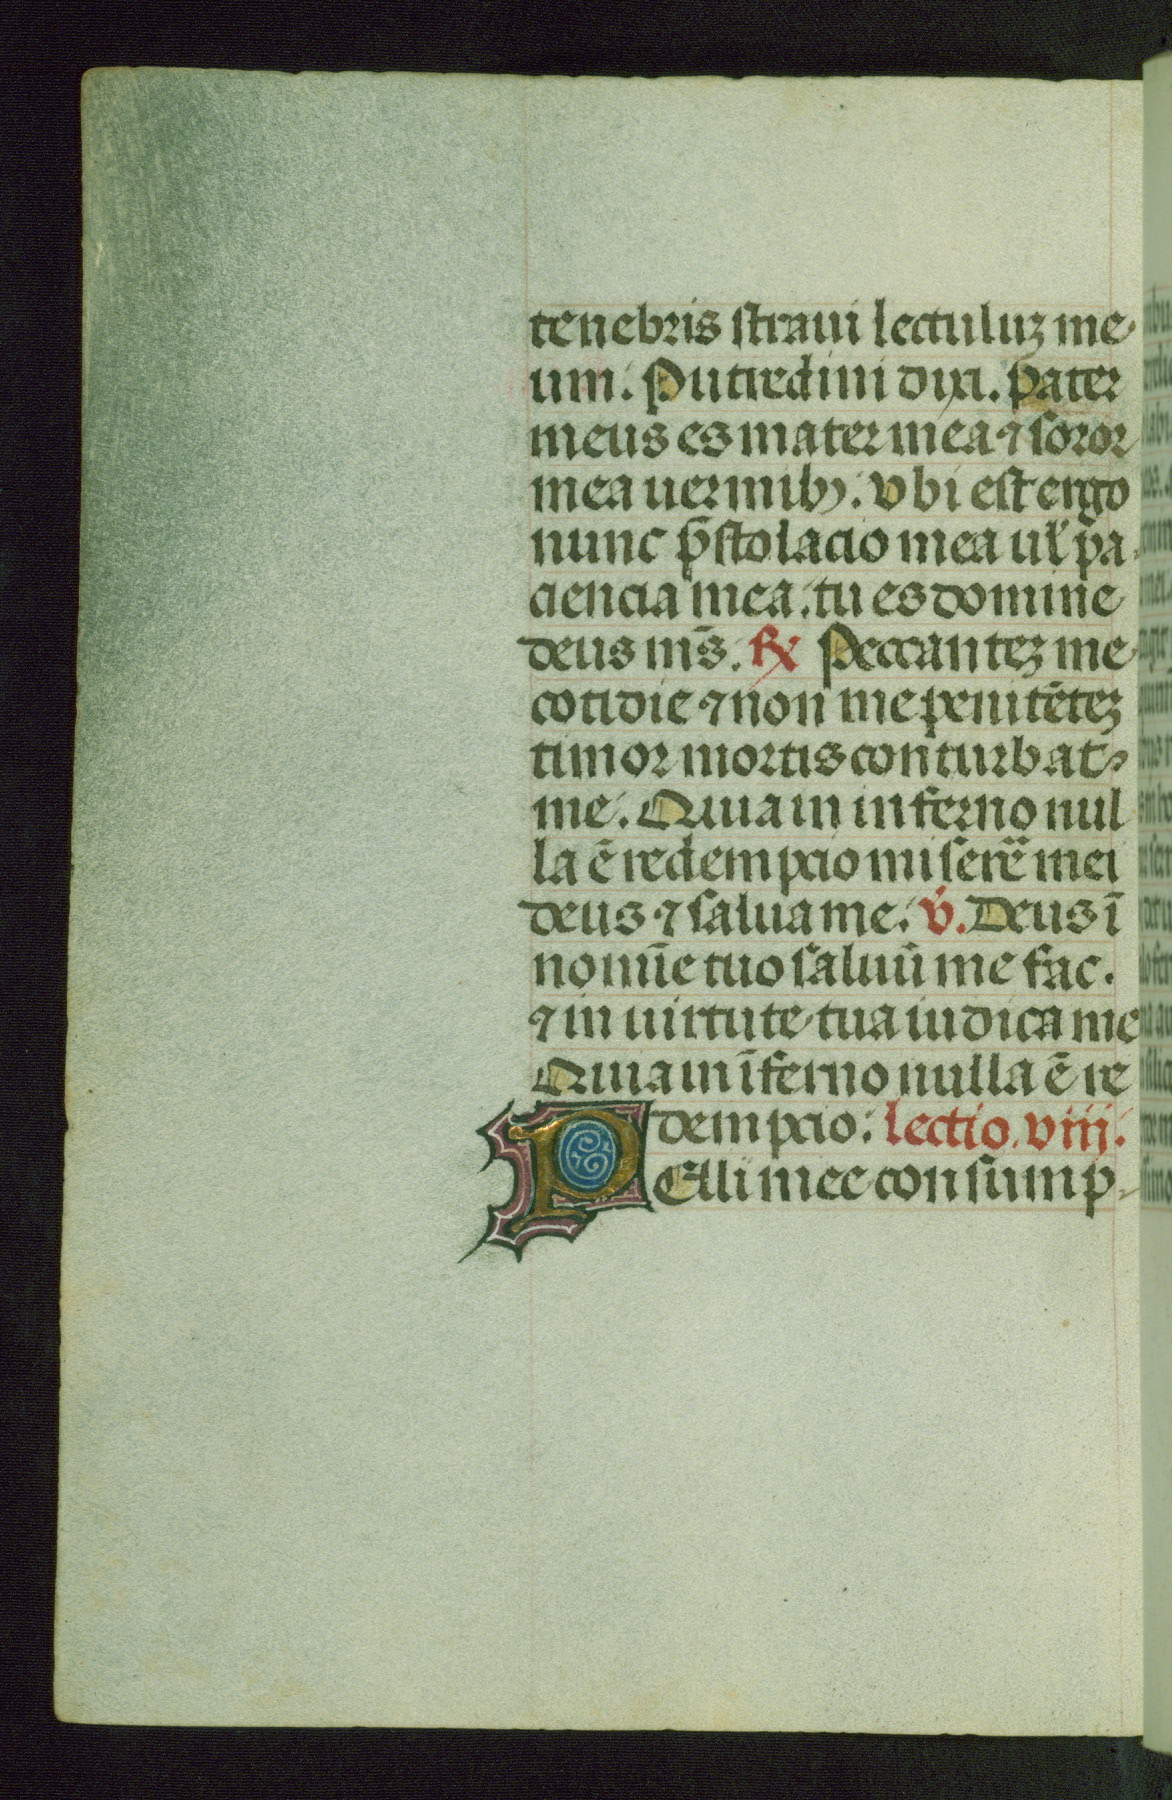 tenebris straui lectuluꝫ me
um. Putredini dixi. pater
meus es mater mea ⁊ soror
mea uermibꝰ. vbi est ergo
nunc p̄stolacio mea ul̓ pa
ciencia mea. tu es domine
deus m̄s. ℟ Peccanteꝫ me
cotidie ⁊ non me penitēteꝫ
timor mortis conturbat
me. Quia in inferno nul
la ē redempcio miserē mei
deus ⁊ salua me. v̓. Deus ī
nomīe tuo saluū me fac.
⁊ in uirtute tua iudica me
Quia in īferno nulla ē re
dempcio: lectio. viii.
PElli mee consump